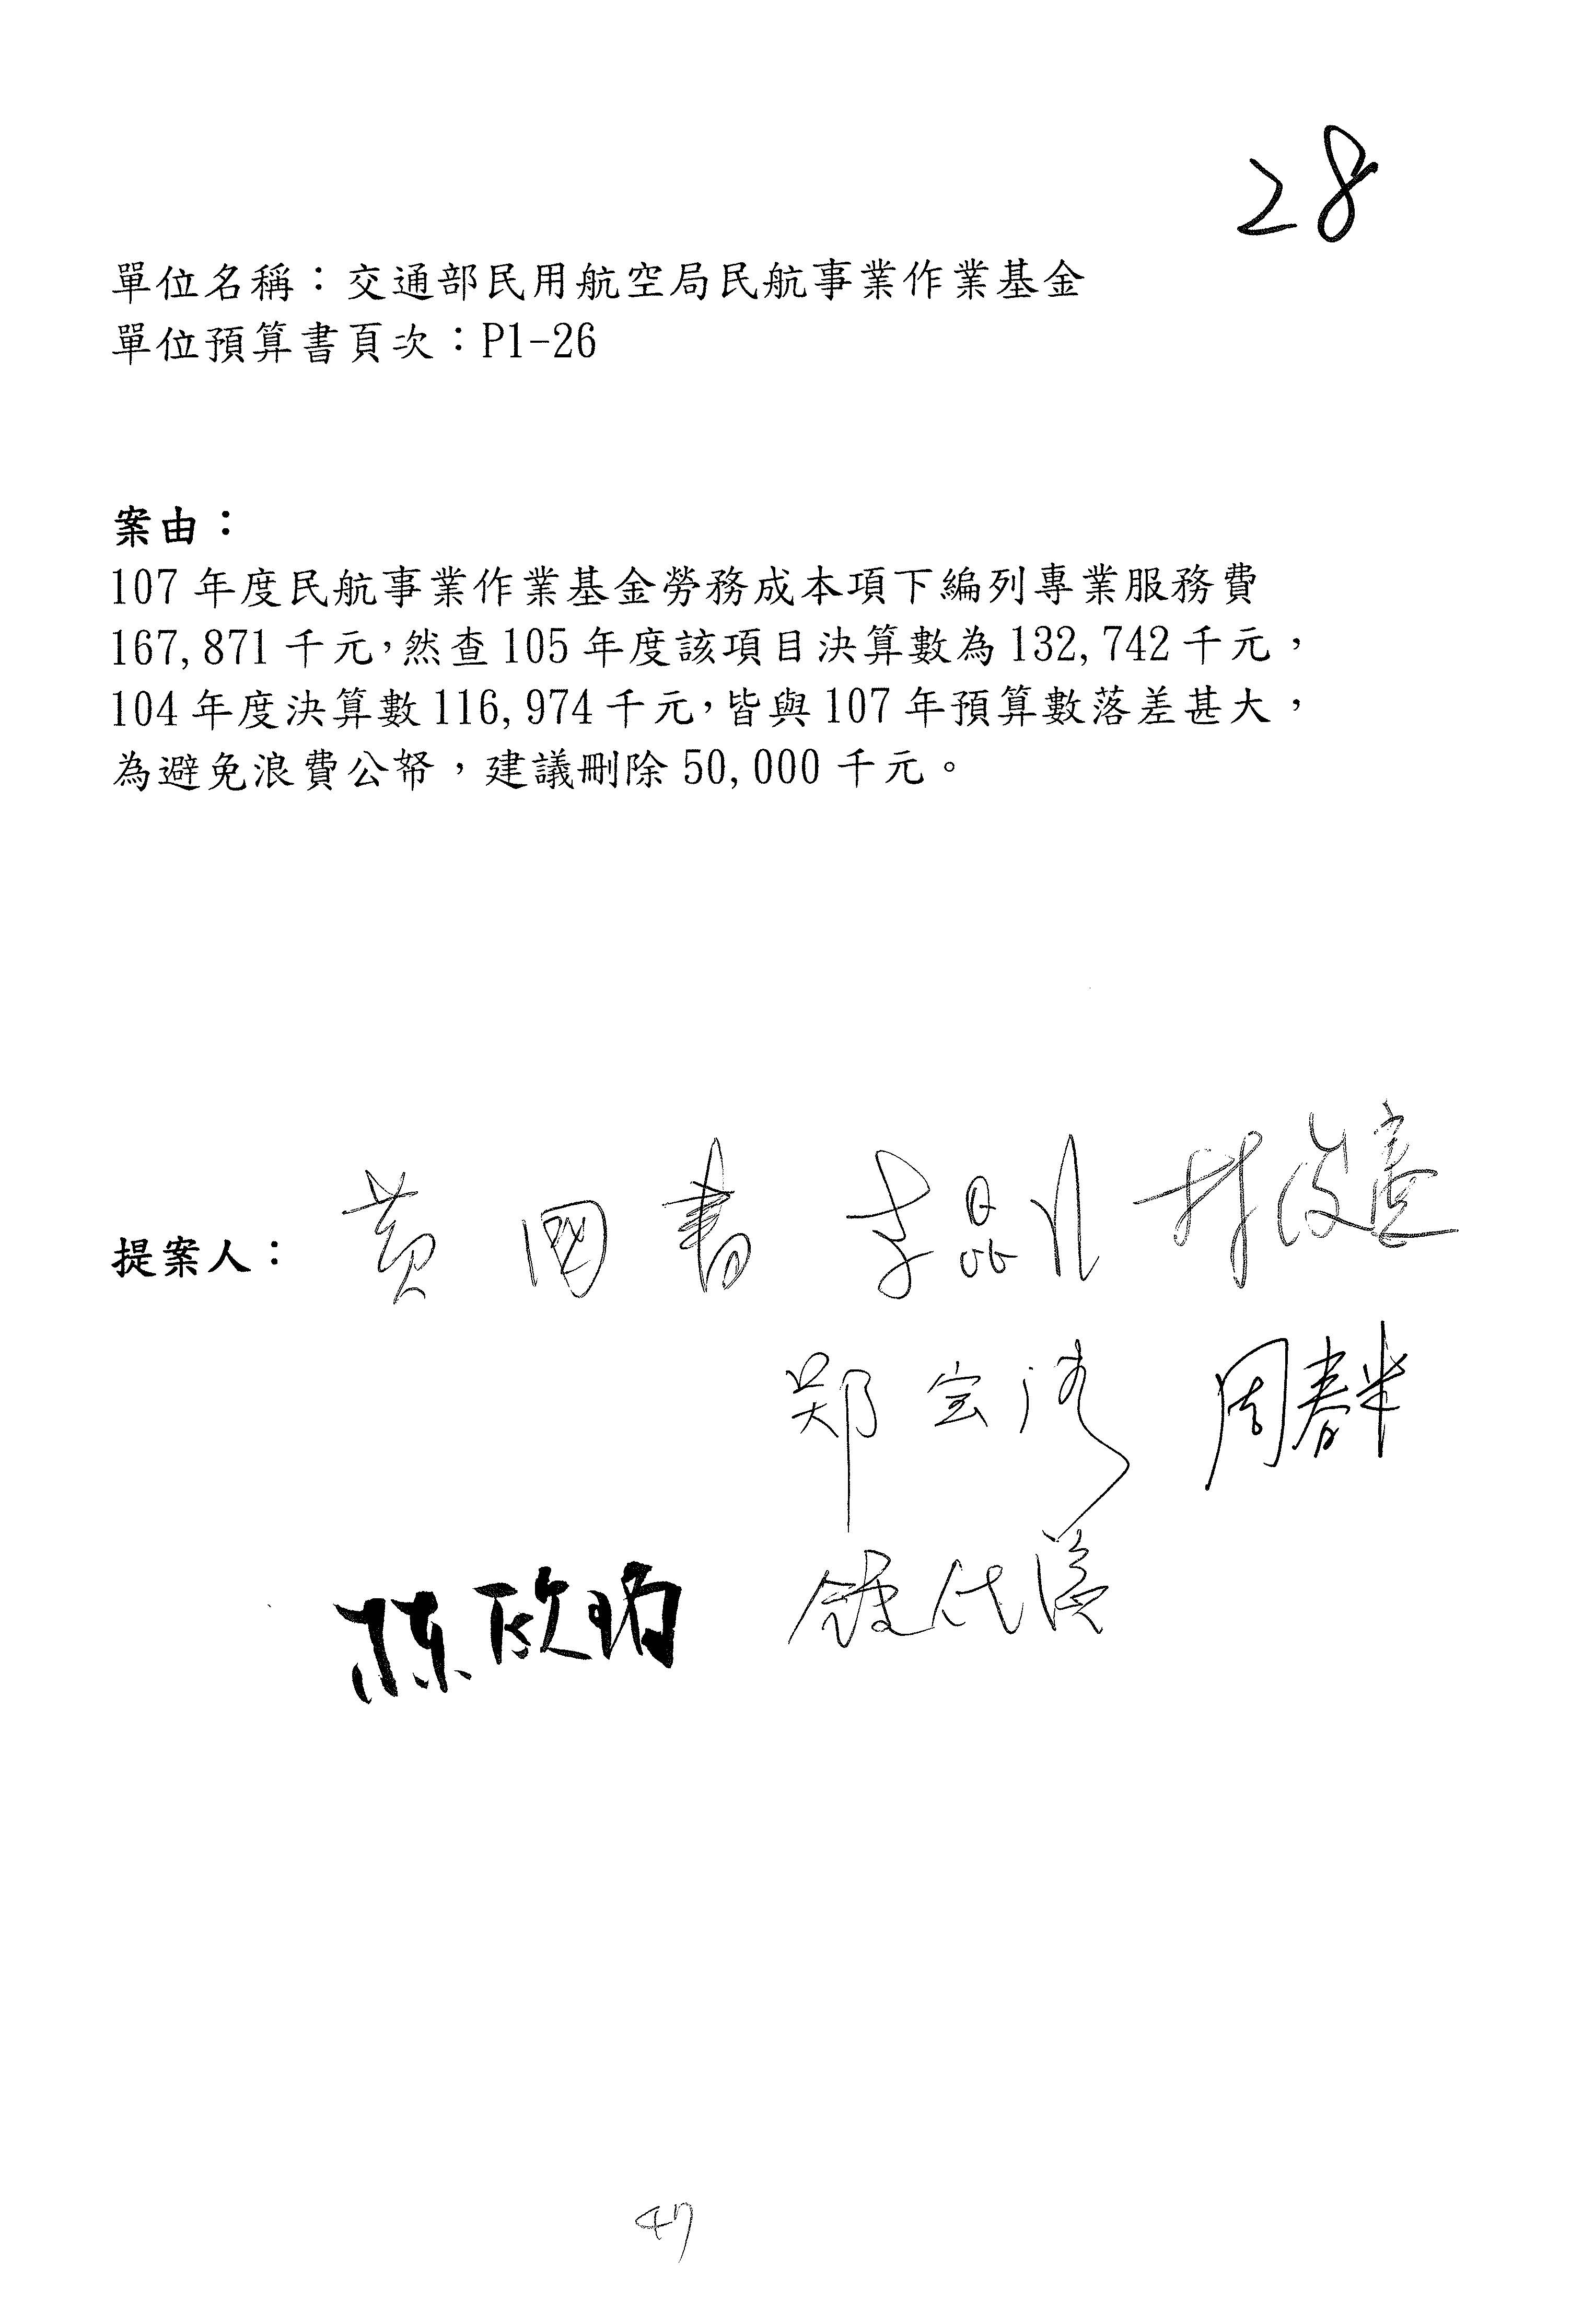 28
單位名稱：交通部民用航空局民航事業作業基金
單位預算書頁次：P1-26
案由：
107 年度民航事業作業基金勞務成本項下編列專業服務費
167,871 千元，然查 105 年度該項目決算數為 132,742 千元，
104 年度決算數 116,974 千元，皆與 107 年預算數落差甚大，
為避免浪費公帑，建議刪除 50,000 千元。
提案人： 黃國書 李昆澤 林俊憲
鄭宝清 周春米
陳歐珀 鍾佳濱
47